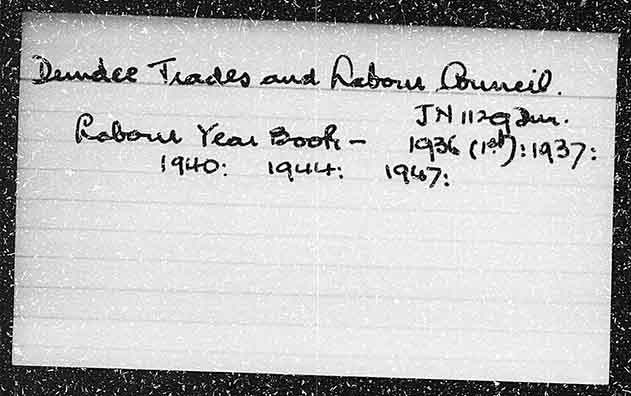 Dundee Trades and Labour Council.
JN 1129 Dun.
Labour Year Book – 1936 (1st): 1937:
1940: 1944: 1947: